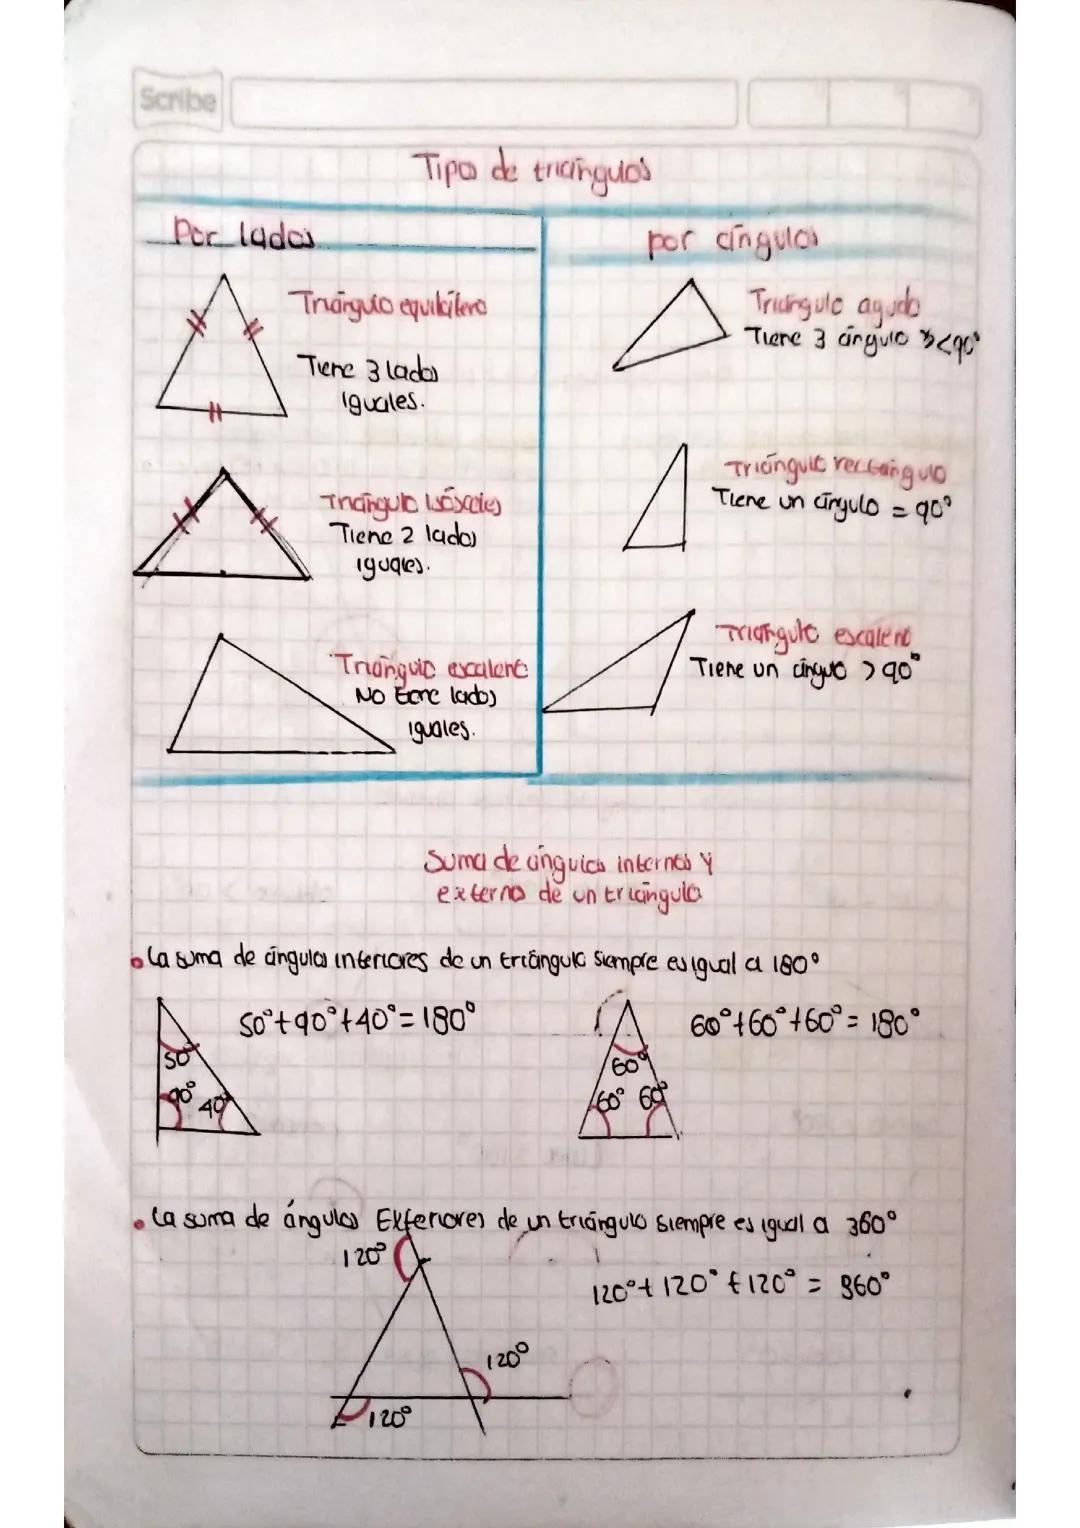 Scribe
Tipos de triángulos
Por lados
por ángulos
Triángulo equilátero
Tiene 3 lados
iguales.
Triángulo isósceles
Tiene 2 lados
iguales.
Triángulo escaleno
No tiene lados
iguales.
Triángulo agudo
Tiene 3 ángulos <90°
Triángulo rectángulo
Tiene un ángulo = 90°
Triángulo escaleno
Tiene un ángulo > 90°
Suma de ángulos internos y
externo de un triángulo
La suma de ángulos interiores de un triángulo siempre es igual a 180°
50°+90°+40°=180°
50°
90° 40°
60°+60°+60°= 180°
60°
60° 60°
La suma de ángulos Exteriores de un triángulo siempre es igual a 360°
120°
120°+120°+120° = 360°
120°
120°